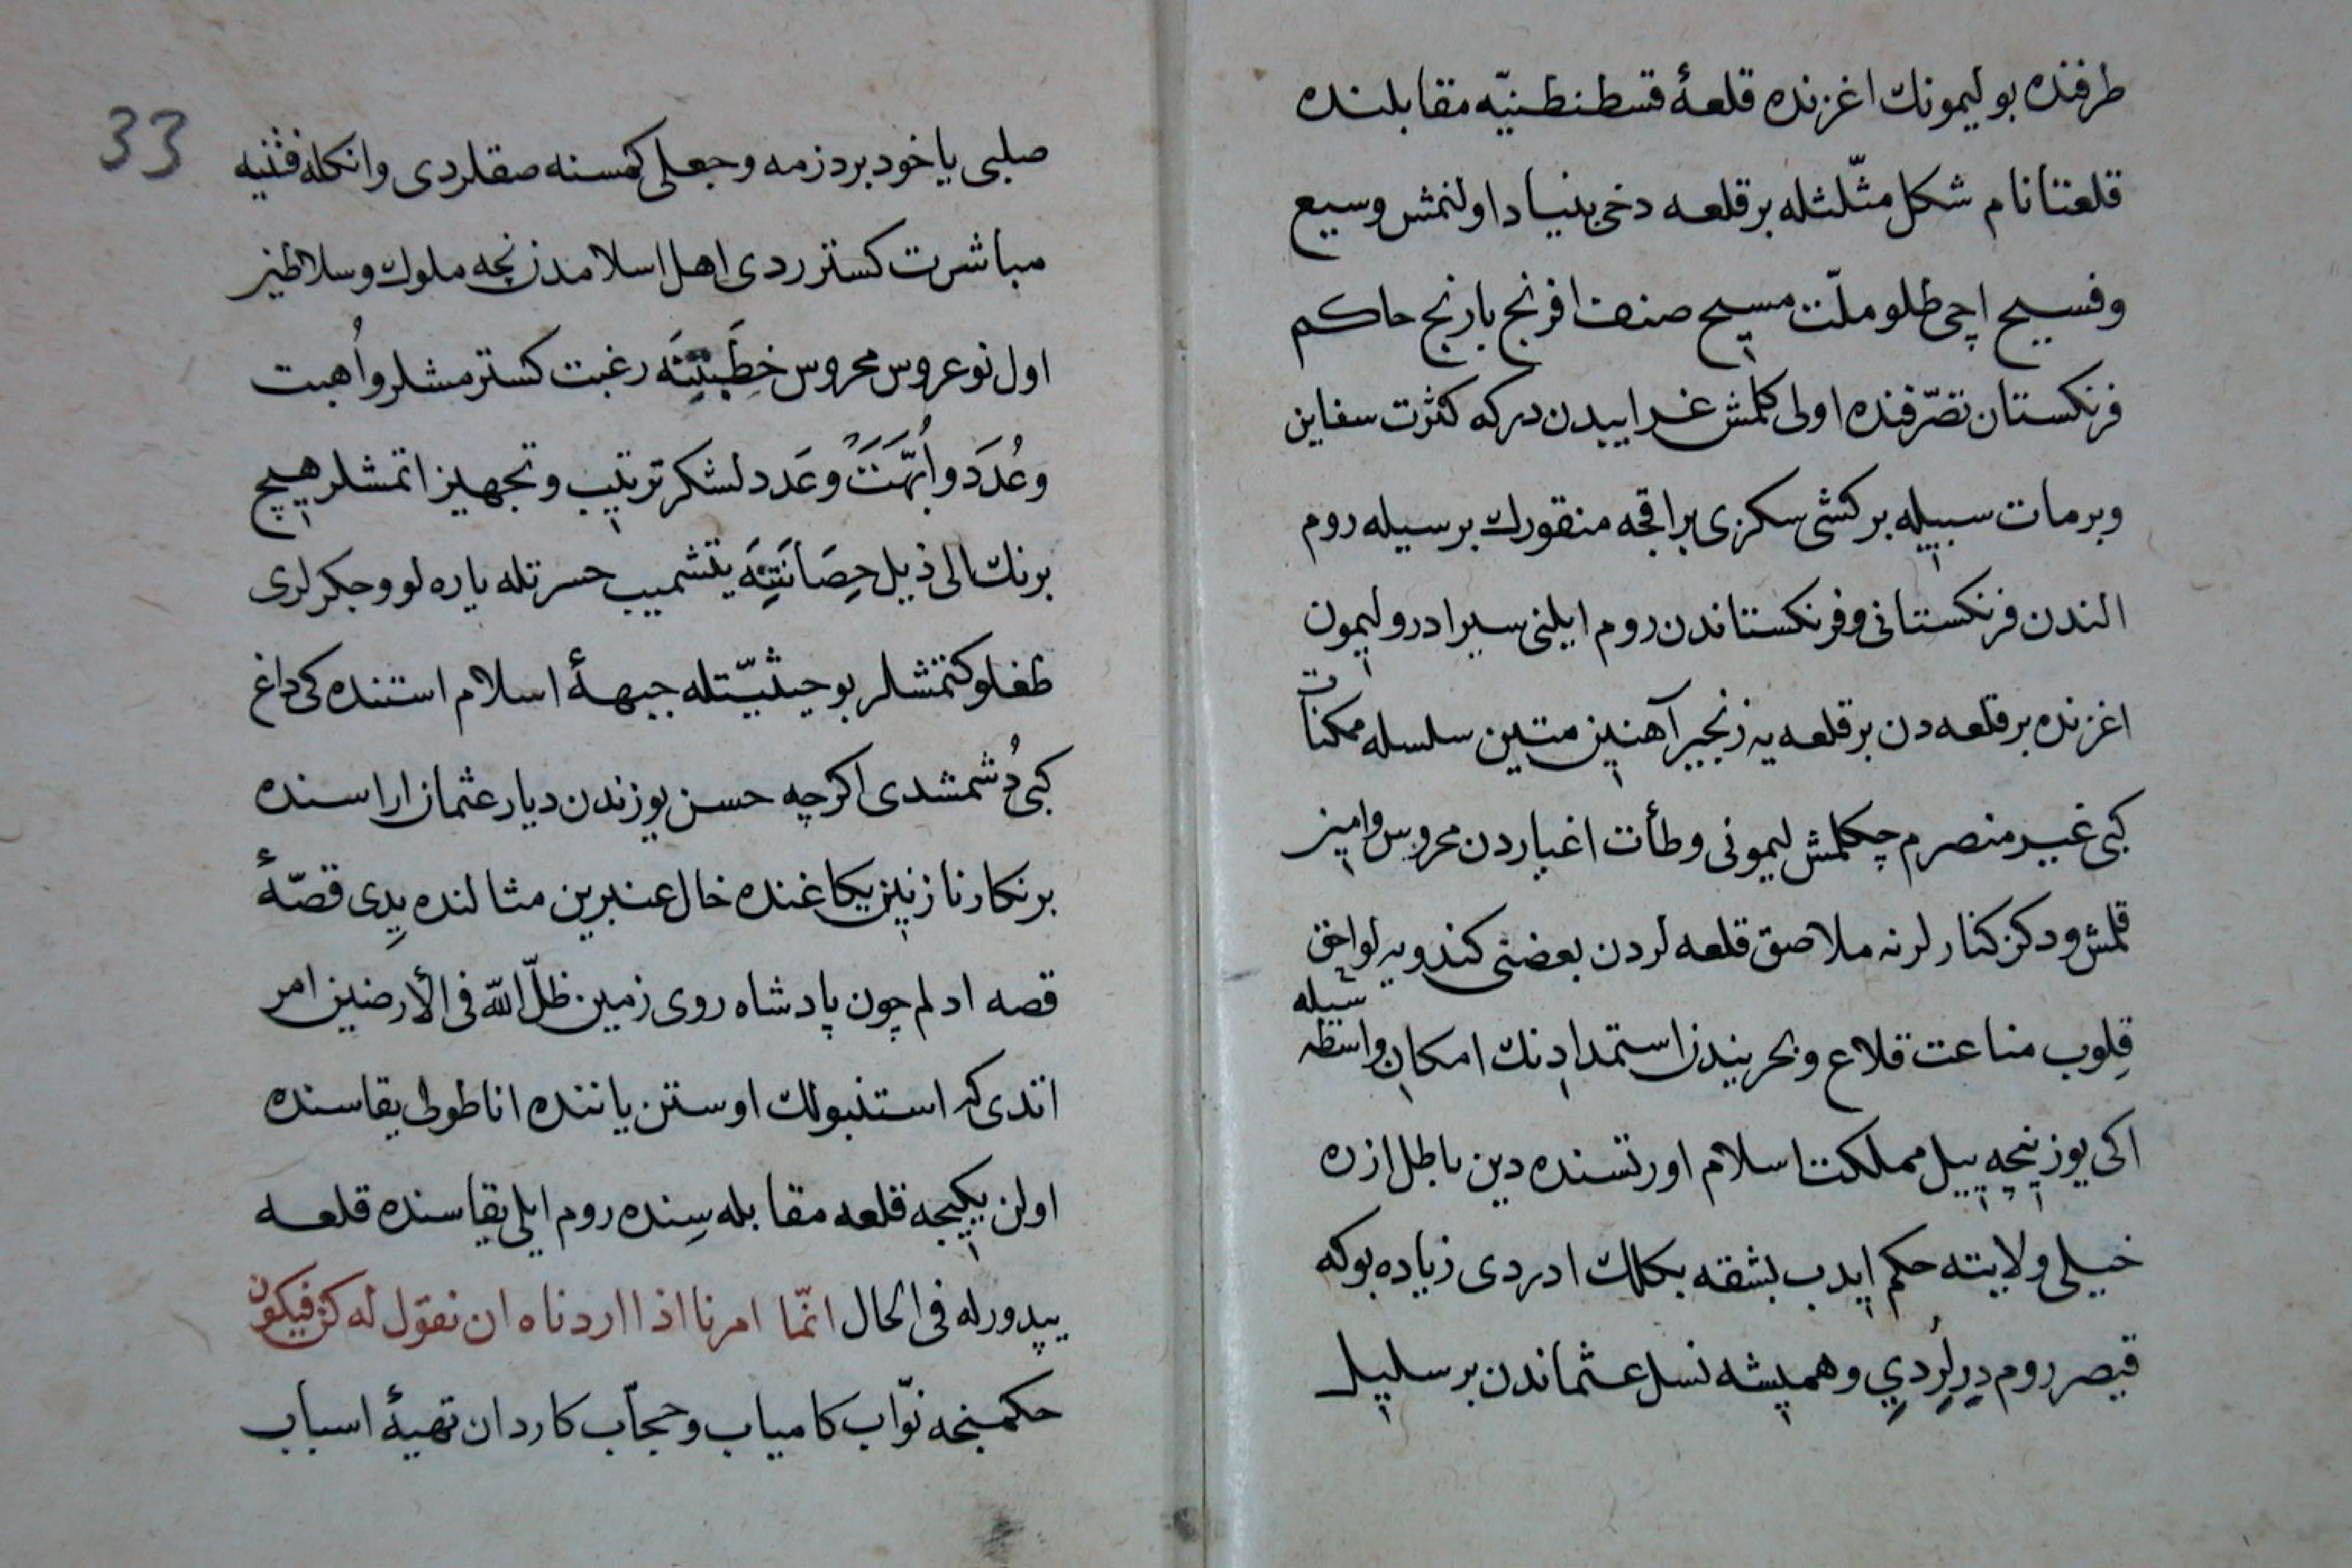 طرفنده بو ليمونك اغزنده قلعۀ قسطنطنيّه مقابلنده
قلعتا نام شكل مثّلثله بر قلعه دخى بنياد اولنمش وسيع
وفسيح اچى طلو ملّت مسيح صنف افرنج بارنج حاكم
فرنكستان تصرّفنده اولى كلمش غدايبدن در كه كثرت سفاين
وبرمات سبيله بر كشى سكزى بر اقجه منقورك برسيله روم
الندن فرنكستانى وفرنكستاندن روم ايلنى سير ادر وليمون
اغزنده بر قلعه دن بر قلعه يه زنجير آهنين متين سلسله ممكنات
كبى غير منصرم چكلمش ليمونى وطأت اغياردن محروس وامين
قلمش ودكز كنارلرنه ملاصق قلعه لردن بعضنى كندويه لواحق
قلوب مناعت قلاع وبحريندن استمدادنك امكان واسطه سيله
اكى يوز نيچه ييل مملكت اسلام اورتسنده دين باطل ازره
خيلى ولايته حكم ايدب بشقه بكلك ادردى زياده بوكه
قيصر روم ديرلردي وهميشه نسل عثماندن بر سليل
33
صلبى ياخود بر دزمه وجعلى كمسنه صقلردى وانكله فتنيه
مباشرت كسترردى اهل اسلامدن نچه ملوك وسلاطين
اول نوعروس محروس خطبتنه رغبت كسترمشلر واُهبت
وعُدَد واُبّهَت وعَدد لشكر ترتيب وتجهيز اتمشلر هيچ
برنك الى ذيل حِصَانَتِنَه يتشميب حسرتله ياره لو وجكرلرى
طغلو كتمشلر بو حيثيّتله جبهۀ اسلام استنده كى داغ
كبى دُشمشدى اكرچه حسن يوزندن ديار عثمان اراسنده
بر نكار نازنين يكاغنده خال عنبرين مثالنده يدى قصّۀ
قصه ادلم چون پادشاه روى زمين ظلّ الله فى الأرضين امر
اتدى كه استنبولك اوستن ياننده اناطولى يقاسنده
اولن يكيجه قلعه مقابله سنده روم ايلى يقاسنده قلعه
ييدورله فى الحال انّما امرنا اذا اردناه ان نقول له كن فيكون
حكمنجه نوّاب كامياب وحجّاب كاردان تهيۀ اسباب